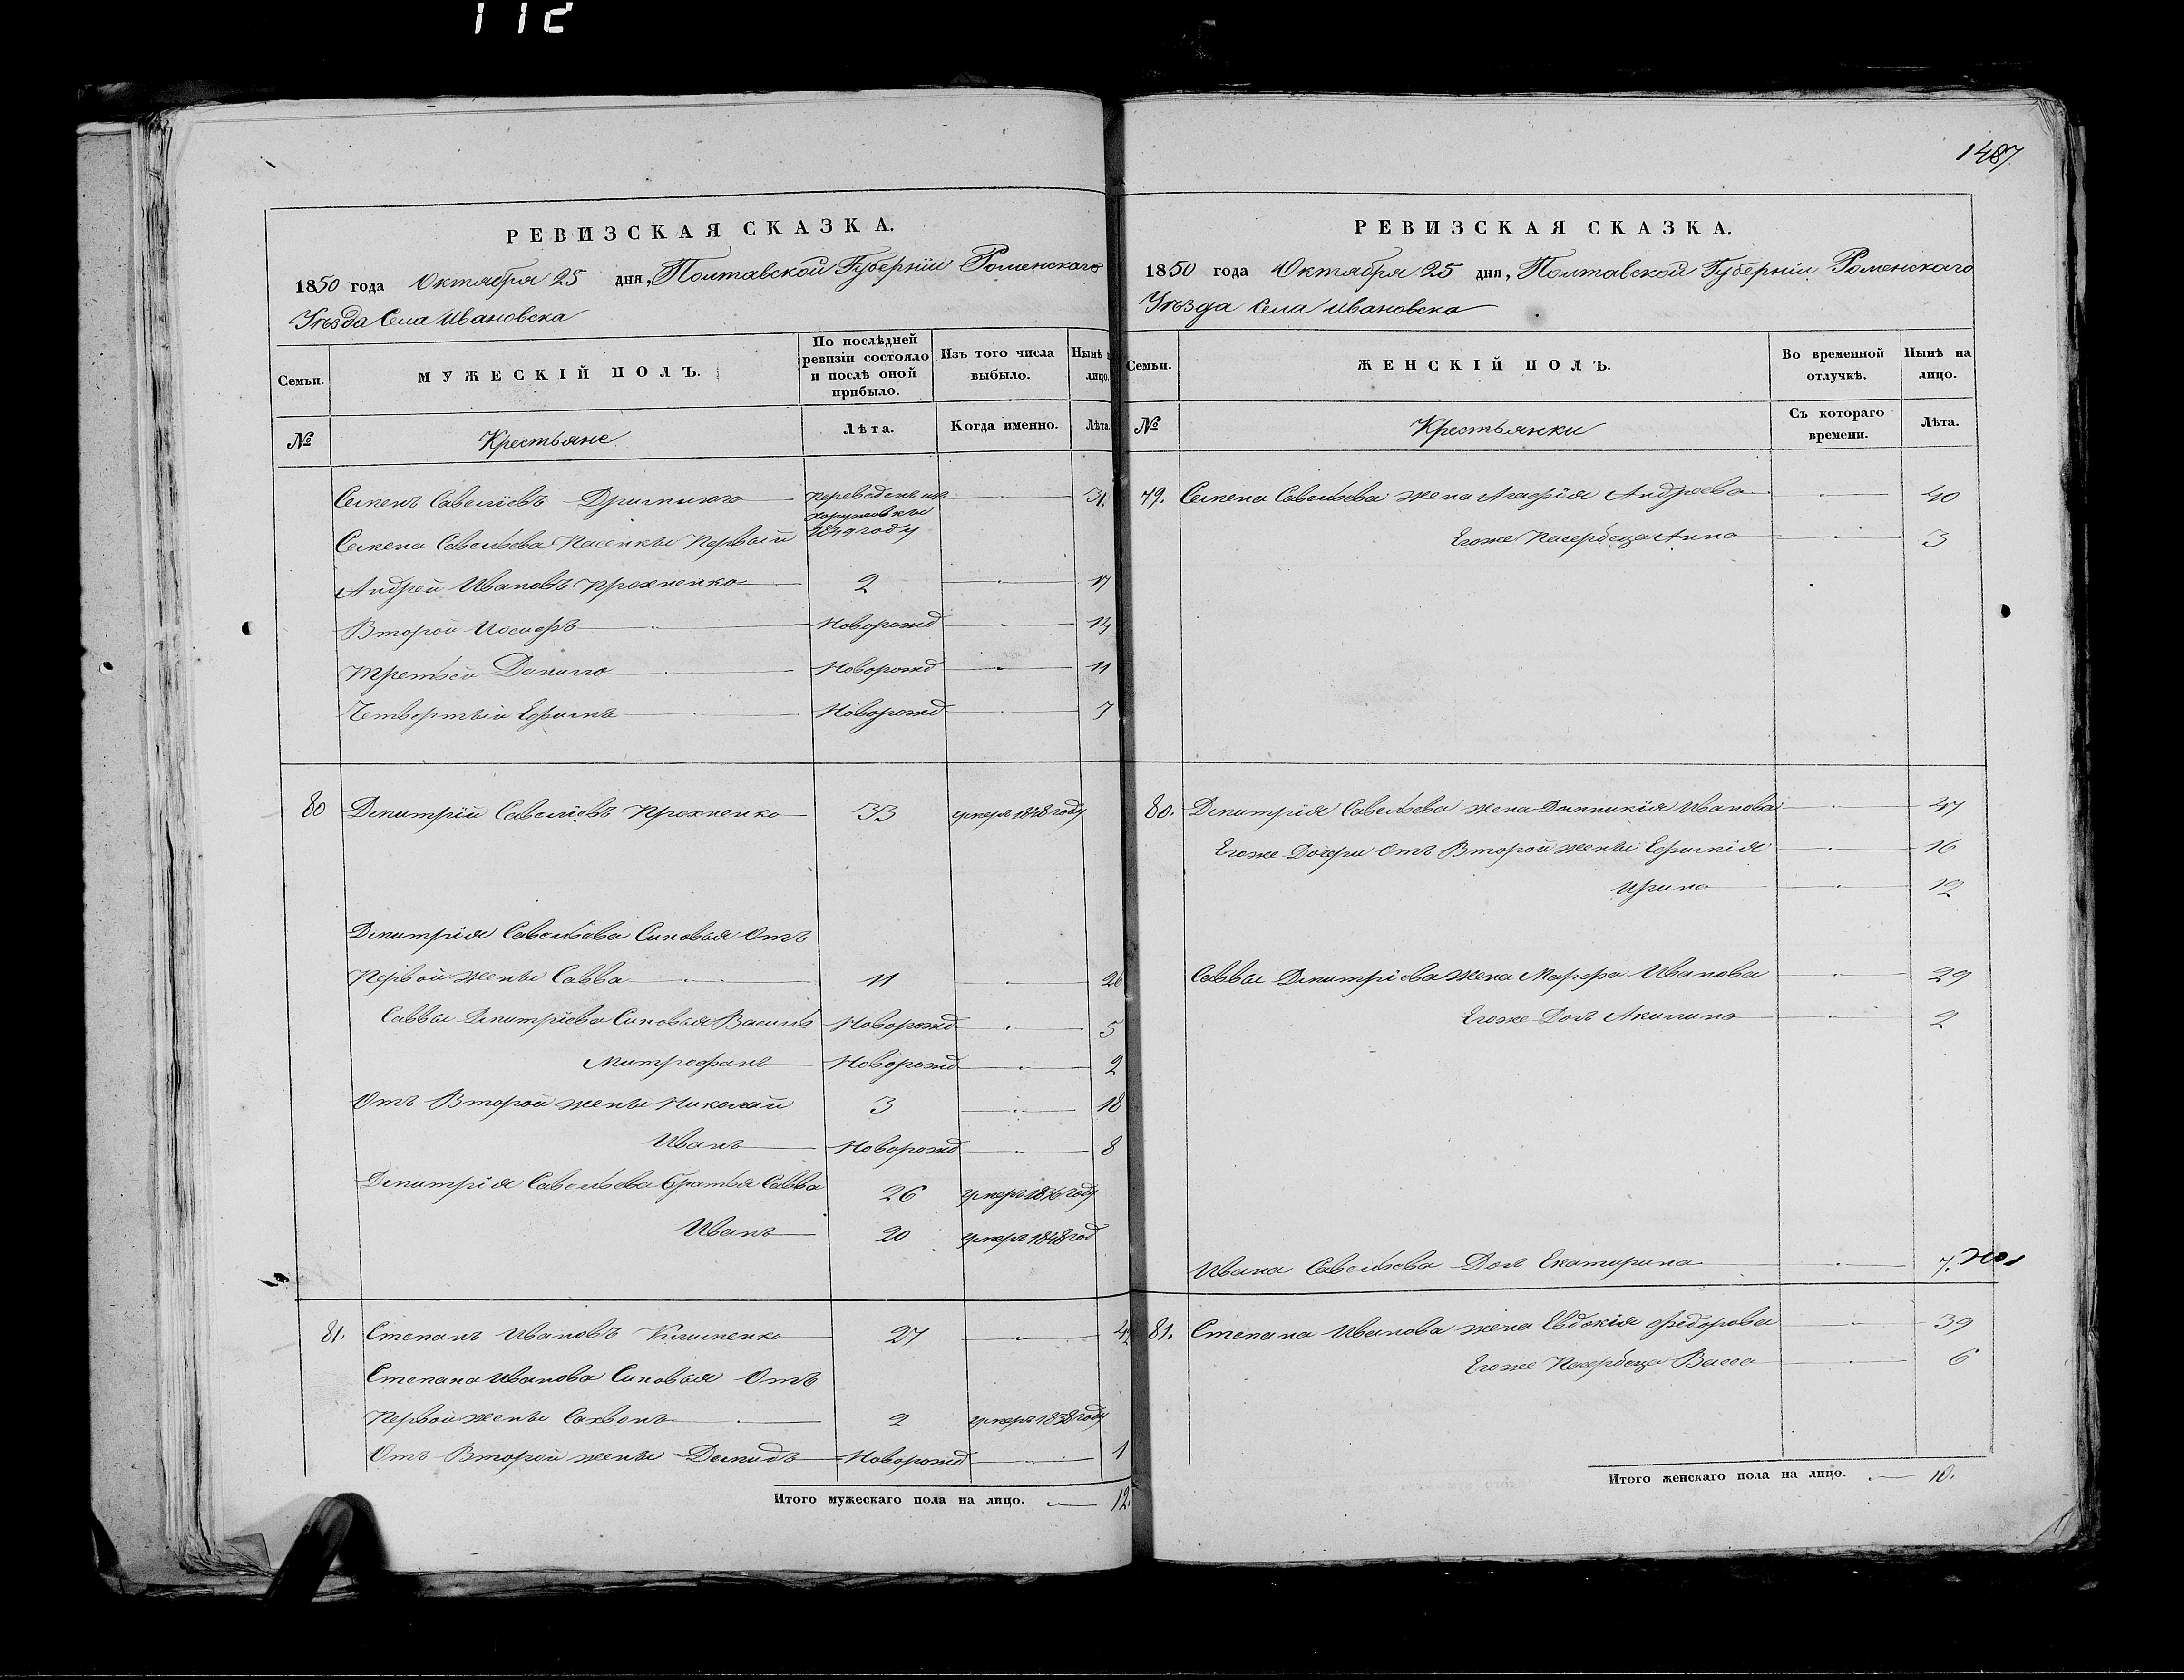 112
РЕВИЗСКАЯ СКАЗКА.
1850 года Октября 25 дня, Полтавской Губерніи Роменскаго
Уѣзда Села Ивановска
Семьи.
МУЖЕСКІЙ ПОЛЪ.
По послѣдней ревизіи состояло и послѣ оной прибыло.
Изъ того числа выбыло.
Нынѣ лицо.
№
Крестьяне
Лѣта.
Когда именно.
Лѣта.
Семенъ Савеліевъ 31.
1849 году
Семена Савельева Пасенки Первый
Андрей Ивановъ Прохненко 2 17
Второй Иосифъ Новорожд 14
Третьей Данило Новорожд 11
Четвертый Ефимъ Новорожд 7
80 Дмитрій Савеліевъ Прохненко 33 умеръ 1848 году
Дмитрія Савельева Синовья Отъ
Первой жены Савва 11 26
Саввы Дмитріева Синовья Василь Новорожд 5
Митрофанъ Новорожд 2
Отъ Второй жены Николай 3 18
Иванъ Новорожд 8
Дмитрія Савельева братья Савва 26 умеръ 1836 году
Иванъ 20 умеръ 1848 год
81. Степанъ Ивановъ Клименко 27 42
Степана Иванова Синовья Отъ
Первой жены Сахвонъ 2 умеръ 1838 году
Отъ Второй жены Демидъ Новорожд 1
Итого мужескаго пола на лицо. 12.
1487.
РЕВИЗСКАЯ СКАЗКА.
1850 года Октября 25 дня, Полтавской Губерніи Роменскаго
Уѣзда Села Ивановска
Семьи.
ЖЕНСКІЙ ПОЛЪ.
Во временной отлучкѣ.
Нынѣ на лицо.
№
Крестьянки
Съ котораго времени.
Лѣта.
79. Семена Савельева жена Агафія Андреева 40
Егоже Пасербеца Анна 3
80. Дмитрія Савельева жена Домникія Иванова 47
Егоже Дочери Отъ Второй жены Ефимія 16
Ирина 12
Саввы Дмитріева жена Марфа Иванова 29
Егоже Дочь Акилина 2
Ивана Савельева Дочь Екатирина 7.
81. Степана Иванова жена Евдокія Федорова 39
Егоже Пасербеца Васса 6
Итого женскаго пола на лицо. 10.